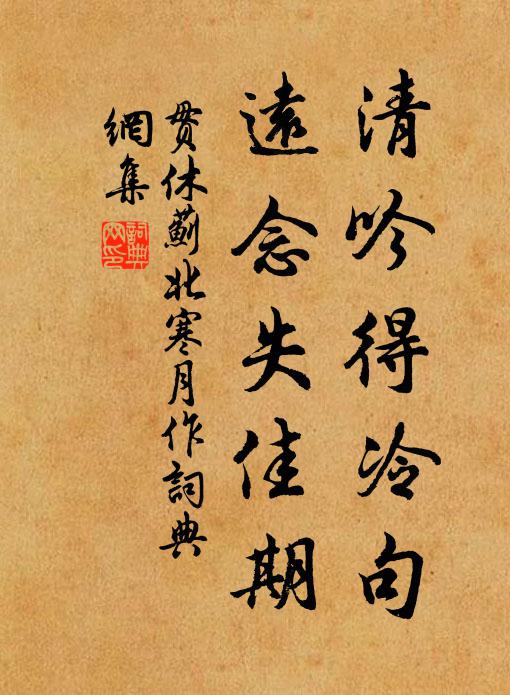 清吟得冷句
遠念失佳期
貫休薊北寒月作詞典
網集
詞典
网印